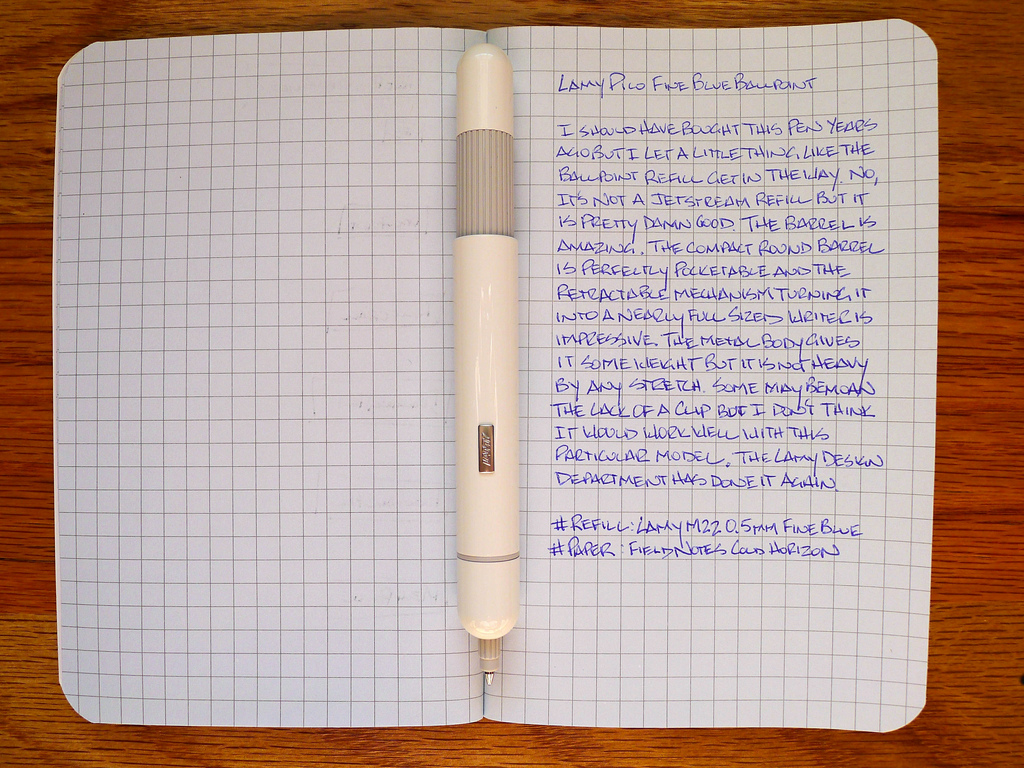 LAMY PICO FINE BLUE BALLPOINT
I SHOULD HAVE BOUGHT THIS PEN YEARS
AGO BUT I LET A LITTLE THING LIKE THE
BALLPOINT REFILL GET IN THE WAY. NO,
IT'S NOT A JETSTREAM REFILL BUT IT
IS PRETTY DAMN GOOD. THE BARREL IS
AMAZING. THE COMPACT ROUND BARREL
IS PERFECTLY POCKETABLE AND THE
RETRACTABLE MECHANISM TURNING IT
INTO A NEARLY FULL SIZED WRITER IS
IMPRESSIVE. THE METAL BODY GIVES
IT SOME WEIGHT BUT IT IS NOT HEAVY
BY ANY STRETCH. SOME MAY BEMOAN
THE LACK OF A CLIP BUT I DON'T THINK
IT WOULD WORK WELL WITH THIS
PARTICULAR MODEL. THE LAMY DESIGN
DEPARTMENT HAS DONE IT AGAIN.
#REFILL: LAMY M22 0.5MM FINE BLUE
#PAPER: FIELD NOTES COLD HORIZON
LAMY